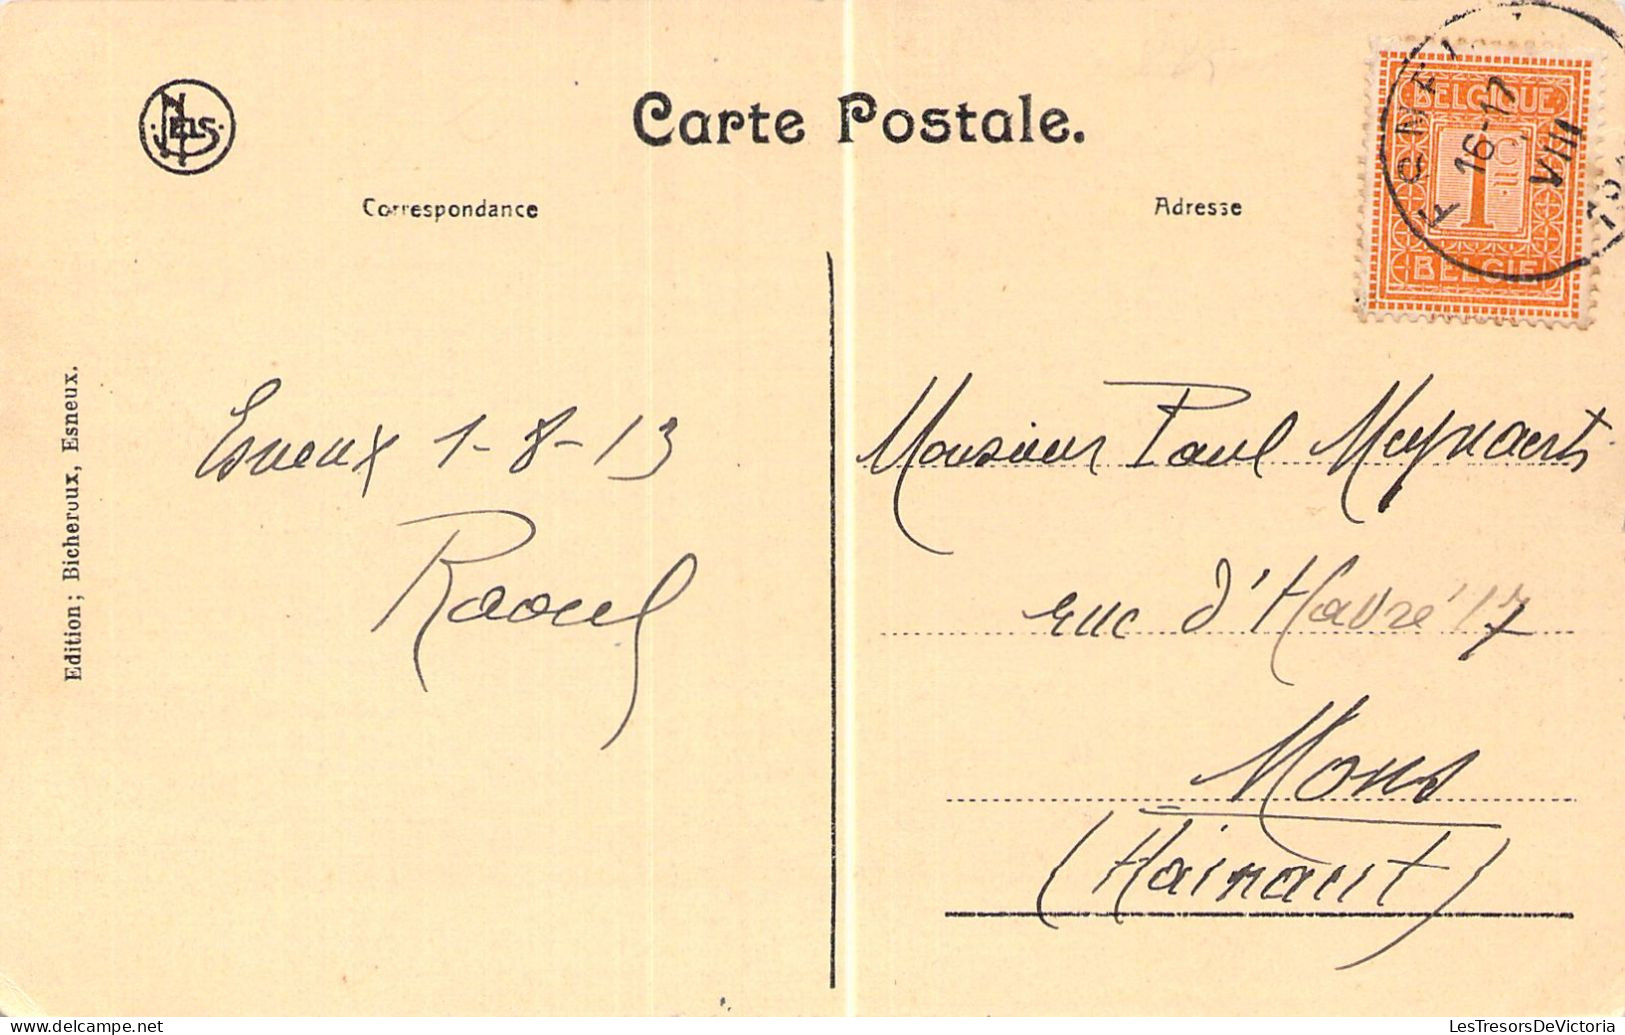 NELS
Carte Postale.
Correspondance
Adresse
BELGIQUE
1
BELGIË
16-17
VIII
Edition; Bicheroux, Esneux.
Esneux 1-8-13
Raoul
Monsieur Paul Meynaerts
rue d'Havré 17
Mons
(Hainaut)
LesTresorsDeVictoria
www.LesTresorsDeVictoria.com